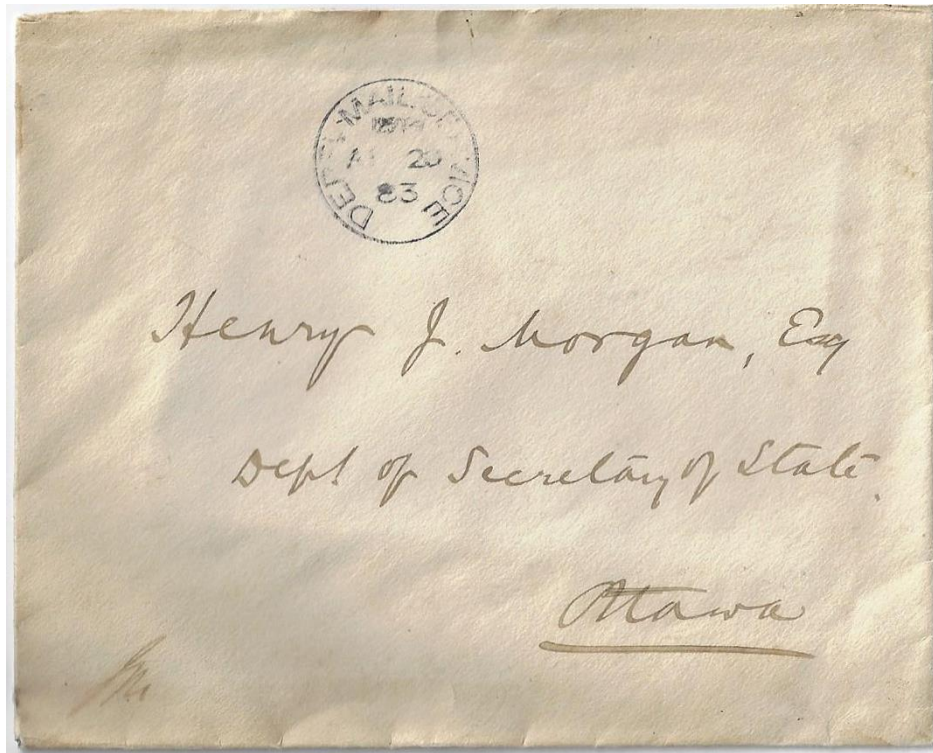 DEPTL MAIL SERVICE
20
83
Henry J. Morgan, Esq
Dept of Secretary of State.
Ottawa